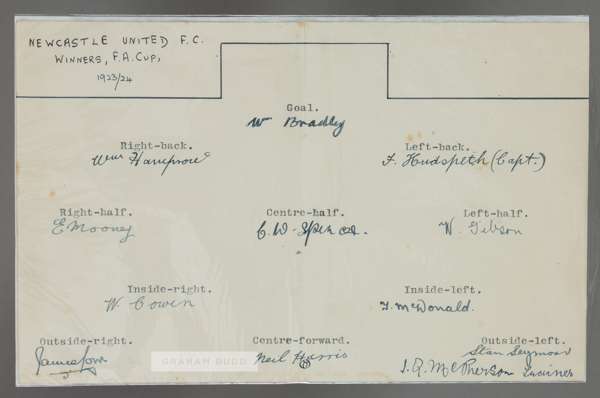 NEWCASTLE UNITED F.C.
WINNERS, F.A. CUP,
1923/24
Goal.
W Bradley
Right-back.
Left-back.
Wm Hampson
F. Hudspeth (Capt.)
Right-half.
Centre-half.
Left-half.
E Mooney
C. W. Spencer.
W. Gibson
Inside-right.
Inside-left.
W. Cowen
T. McDonald.
Outside-right.
Centre-forward.
Outside-left.
James Low
Neil Harris
Stan Seymour
J. Q. McPherson Trainer
GRAHAM BUDD